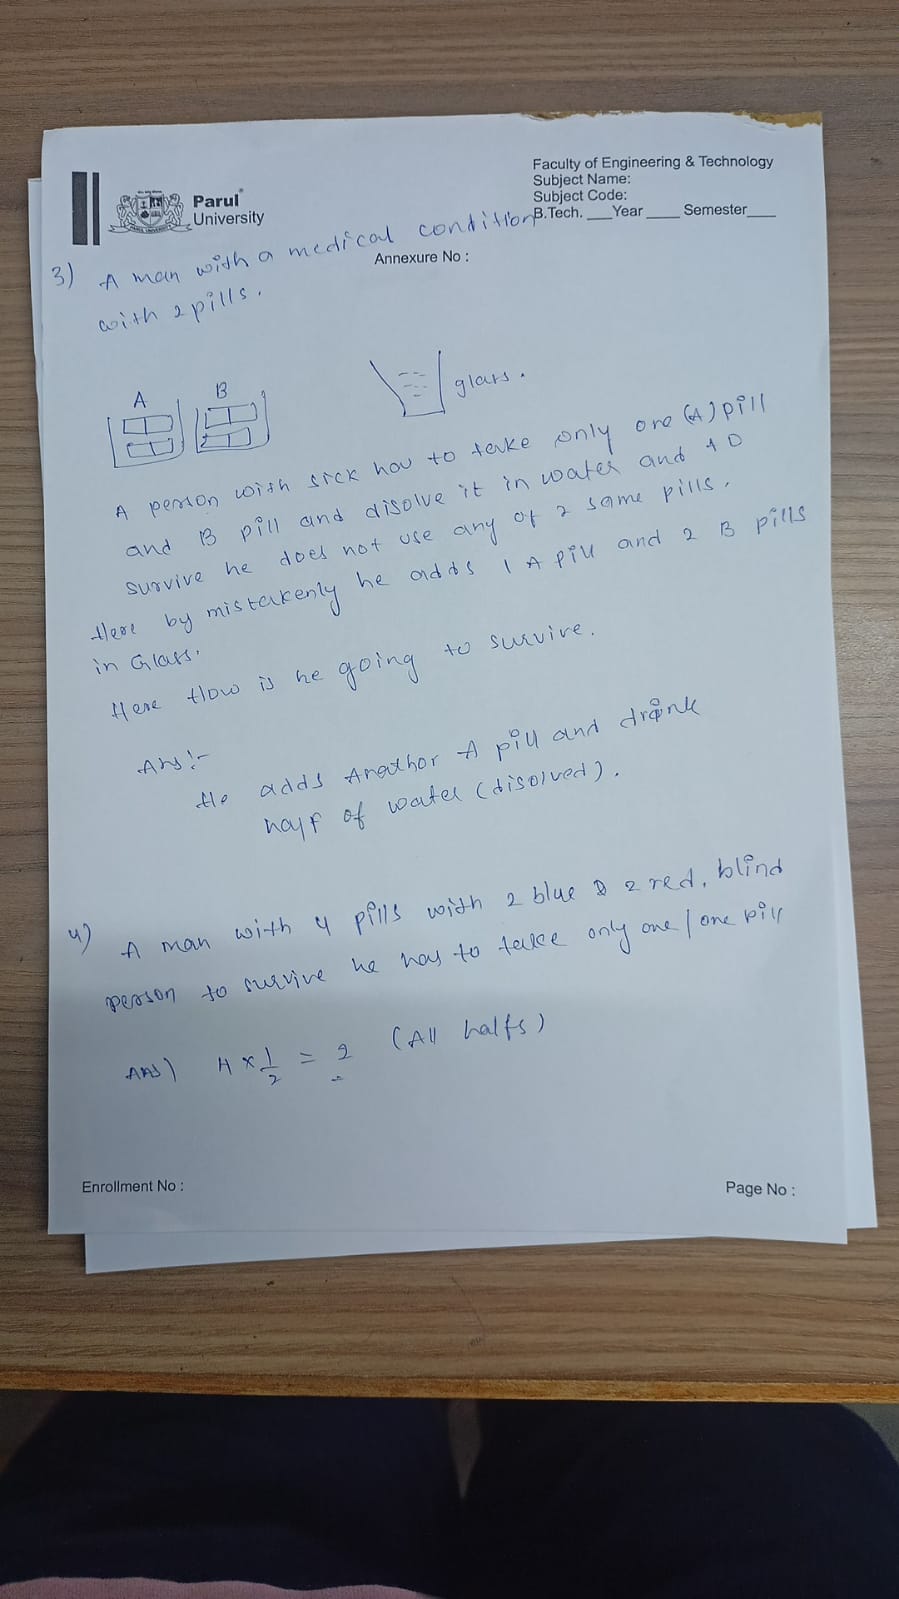 Parul®
University
Faculty of Engineering & Technology
Subject Name:
Subject Code:
B.Tech. ___Year ____ Semester____
Annexure No :
3) A man with a medical condition
with 2 pills.
A B
glass.
A person with sick hav to take only one (A) pill
and B pill and disolve it in water and to
survive he does not use any of 2 same pills.
Here by mistakenly he adds 1 A pill and 2 B pills
in Glass.
Here How is he going to survive.
Ans:-
He adds Anothor A pill and drink
half of water (disolved).
4) A man with 4 pills with 2 blue & 2 red. blind
person to survive he has to take only one/one pill
Ans) 4 x 1/2 = 2 (All halfs)
Enrollment No :
Page No :